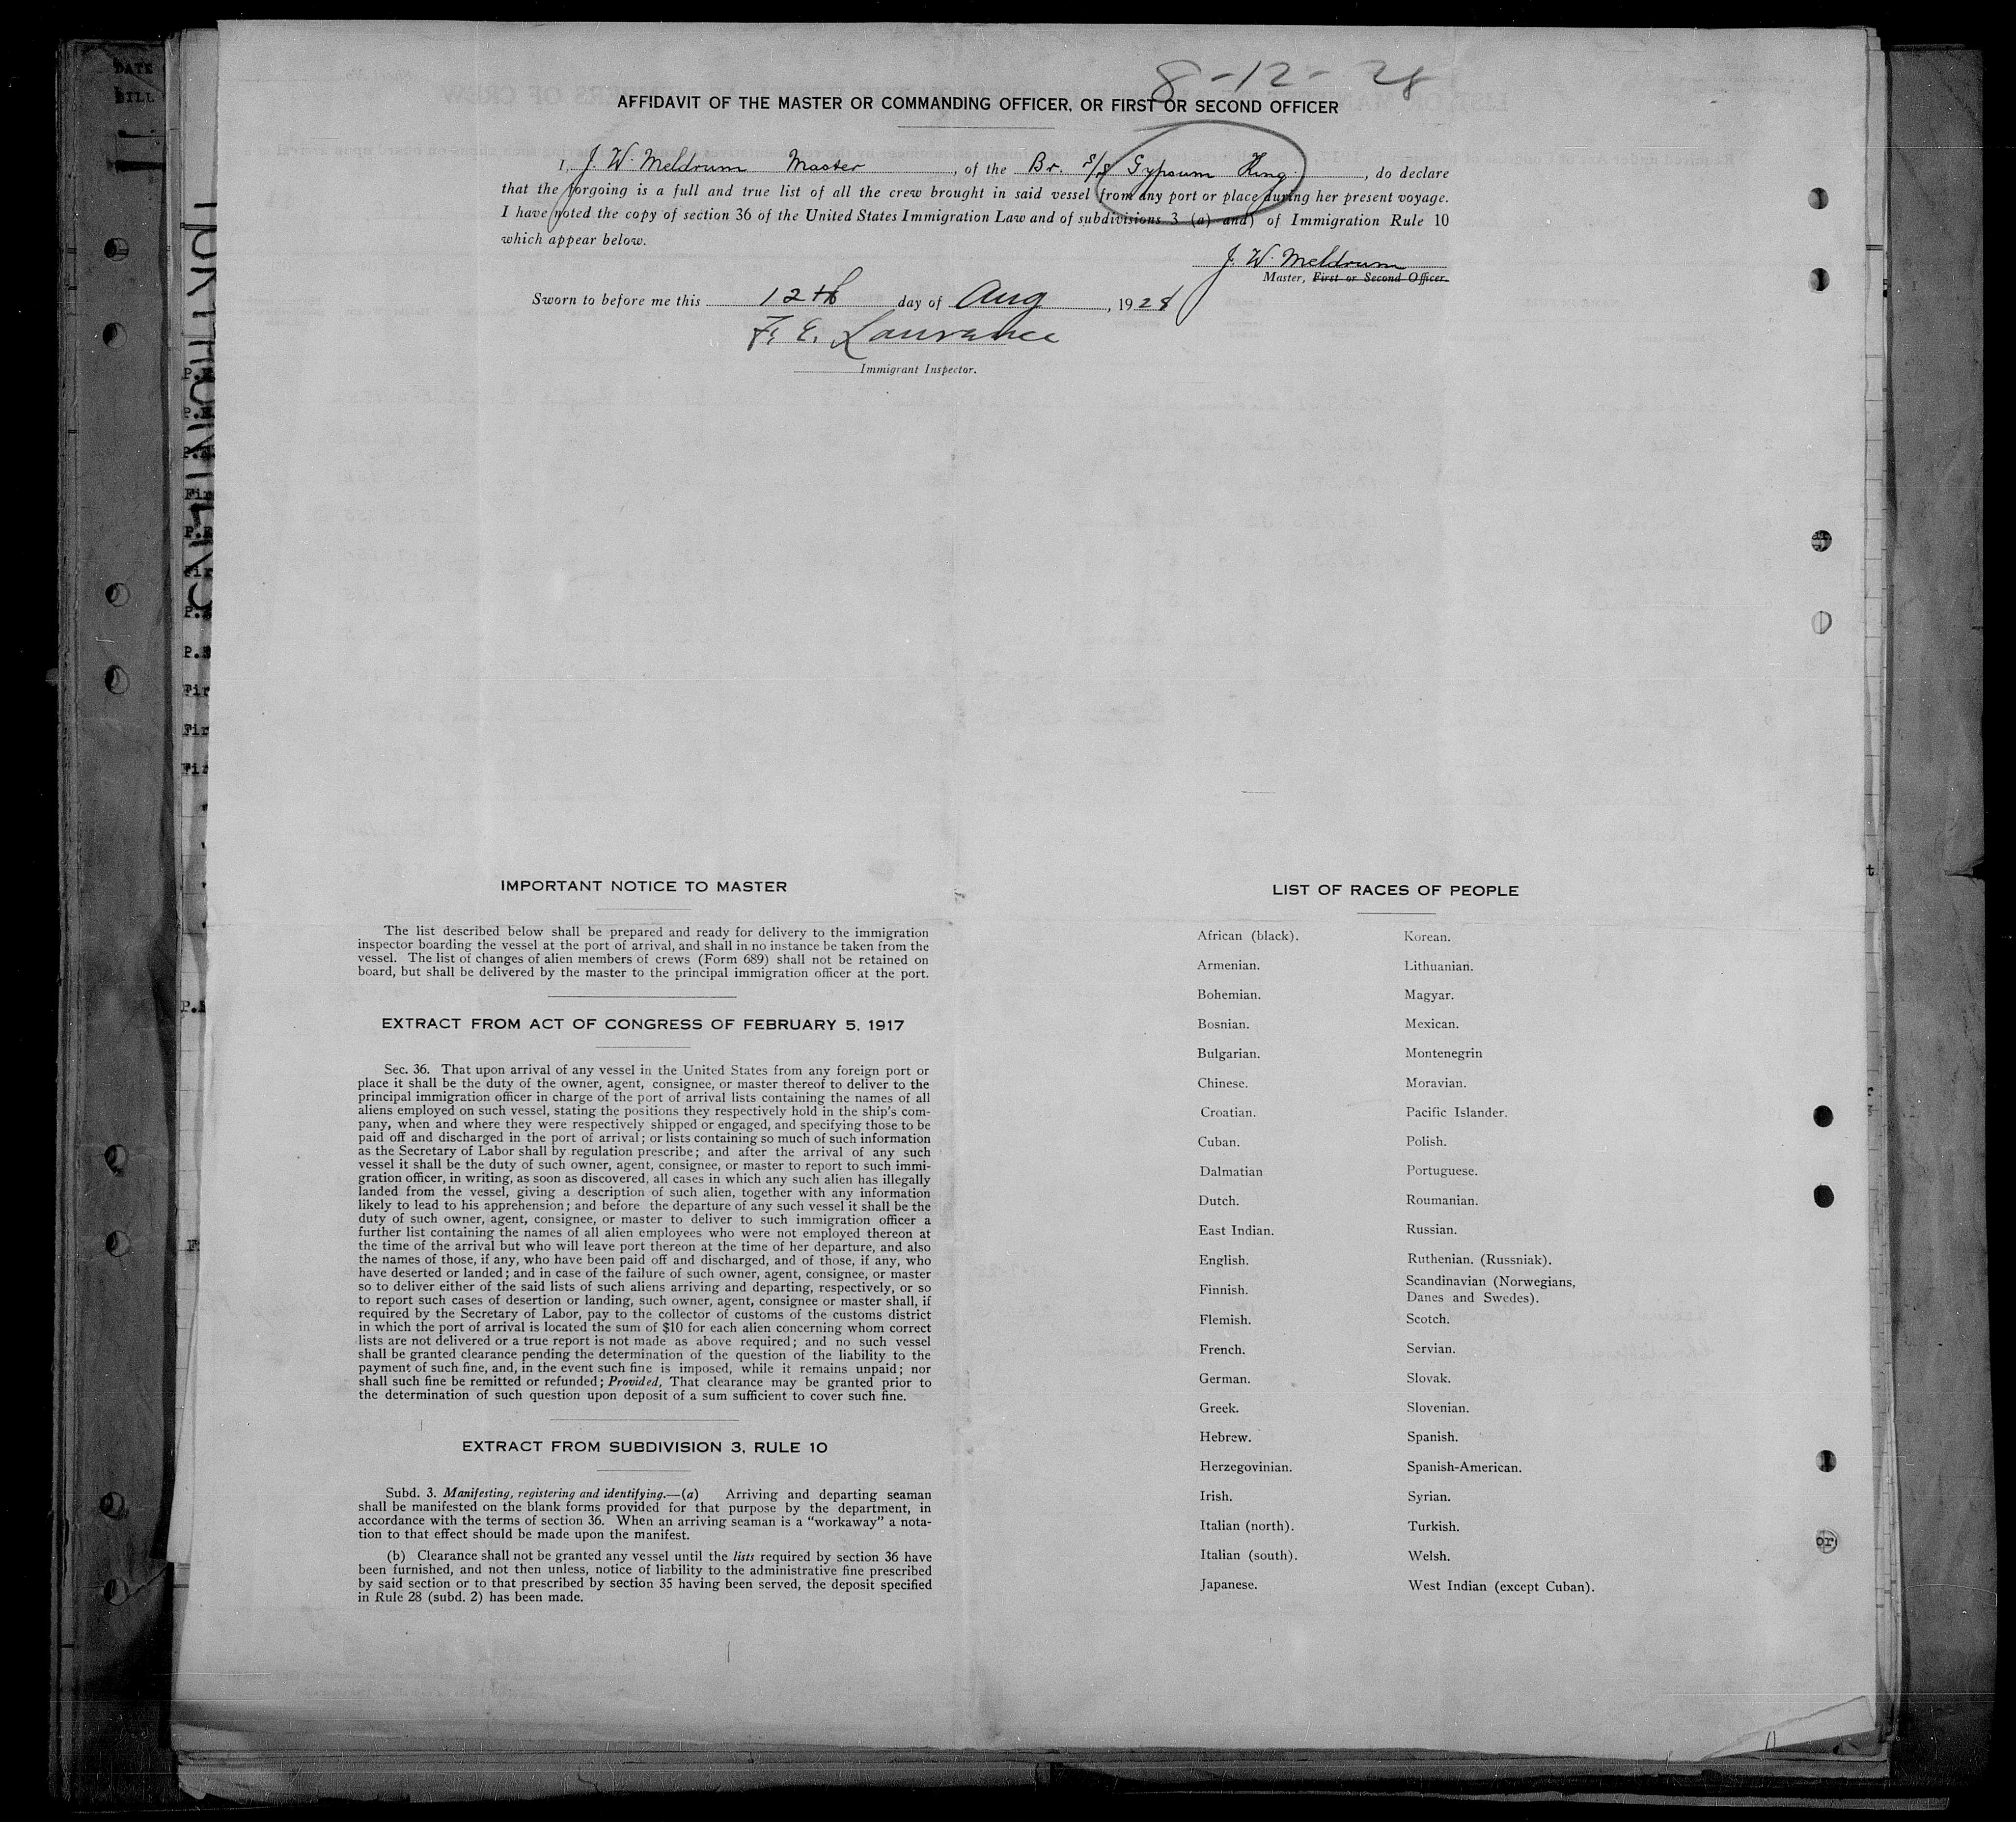 DATE
BILL
8-12-28
AFFIDAVIT OF THE MASTER OR COMMANDING OFFICER, OR FIRST OR SECOND OFFICER
I, J. W. Meldrum Master, of the Br. S/S Gypsum King, do declare
that the forgoing is a full and true list of all the crew brought in said vessel from any port or place during her present voyage.
I have noted the copy of section 36 of the United States Immigration Law and of subdivisions 3 (a) and) of Immigration Rule 10
which appear below.
J. W. Meldrum
Master, First or Second Officer.
Sworn to before me this 12th day of Aug, 1928
F. E. Lauvance
Immigrant Inspector.
IMPORTANT NOTICE TO MASTER
The list described below shall be prepared and ready for delivery to the immigration
inspector boarding the vessel at the port of arrival, and shall in no instance be taken from the
vessel. The list of changes of alien members of crews (Form 689) shall not be retained on
board, but shall be delivered by the master to the principal immigration officer at the port.
EXTRACT FROM ACT OF CONGRESS OF FEBRUARY 5, 1917
Sec. 36. That upon arrival of any vessel in the United States from any foreign port or
place it shall be the duty of the owner, agent, consignee, or master thereof to deliver to the
principal immigration officer in charge of the port of arrival lists containing the names of all
aliens employed on such vessel, stating the positions they respectively hold in the ship's com-
pany, when and where they were respectively shipped or engaged, and specifying those to be
paid off and discharged in the port of arrival; or lists containing so much of such information
as the Secretary of Labor shall by regulation prescribe; and after the arrival of any such
vessel it shall be the duty of such owner, agent, consignee, or master to report to such immi-
gration officer, in writing, as soon as discovered, all cases in which any such alien has illegally
landed from the vessel, giving a description of such alien, together with any information
likely to lead to his apprehension; and before the departure of any such vessel it shall be the
duty of such owner, agent, consignee, or master to deliver to such immigration officer a
further list containing the names of all alien employees who were not employed thereon at
the time of the arrival but who will leave port thereon at the time of her departure, and also
the names of those, if any, who have been paid off and discharged, and of those, if any, who
have deserted or landed; and in case of the failure of such owner, agent, consignee, or master
so to deliver either of the said lists of such aliens arriving and departing, respectively, or so
to report such cases of desertion or landing, such owner, agent, consignee or master shall, if
required by the Secretary of Labor, pay to the collector of customs of the customs district
in which the port of arrival is located the sum of $10 for each alien concerning whom correct
lists are not delivered or a true report is not made as above required; and no such vessel
shall be granted clearance pending the determination of the question of the liability to the
payment of such fine, and, in the event such fine is imposed, while it remains unpaid; nor
shall such fine be remitted or refunded; Provided, That clearance may be granted prior to
the determination of such question upon deposit of a sum sufficient to cover such fine.
EXTRACT FROM SUBDIVISION 3, RULE 10
Subd. 3. Manifesting, registering and identifying.—(a) Arriving and departing seaman
shall be manifested on the blank forms provided for that purpose by the department, in
accordance with the terms of section 36. When an arriving seaman is a "workaway" a nota-
tion to that effect should be made upon the manifest.
(b) Clearance shall not be granted any vessel until the lists required by section 36 have
been furnished, and not then unless, notice of liability to the administrative fine prescribed
by said section or to that prescribed by section 35 having been served, the deposit specified
in Rule 28 (subd. 2) has been made.
LIST OF RACES OF PEOPLE
African (black). Korean.
Armenian. Lithuanian.
Bohemian. Magyar.
Bosnian. Mexican.
Bulgarian. Montenegrin
Chinese. Moravian.
Croatian. Pacific Islander.
Cuban. Polish.
Dalmatian Portuguese.
Dutch. Roumanian.
East Indian. Russian.
English. Ruthenian. (Russniak).
Finnish. Scandinavian (Norwegians,
Danes and Swedes).
Flemish. Scotch.
French. Servian.
German. Slovak.
Greek. Slovenian.
Hebrew. Spanish.
Herzegovinian. Spanish-American.
Irish. Syrian.
Italian (north). Turkish.
Italian (south). Welsh.
Japanese. West Indian (except Cuban).